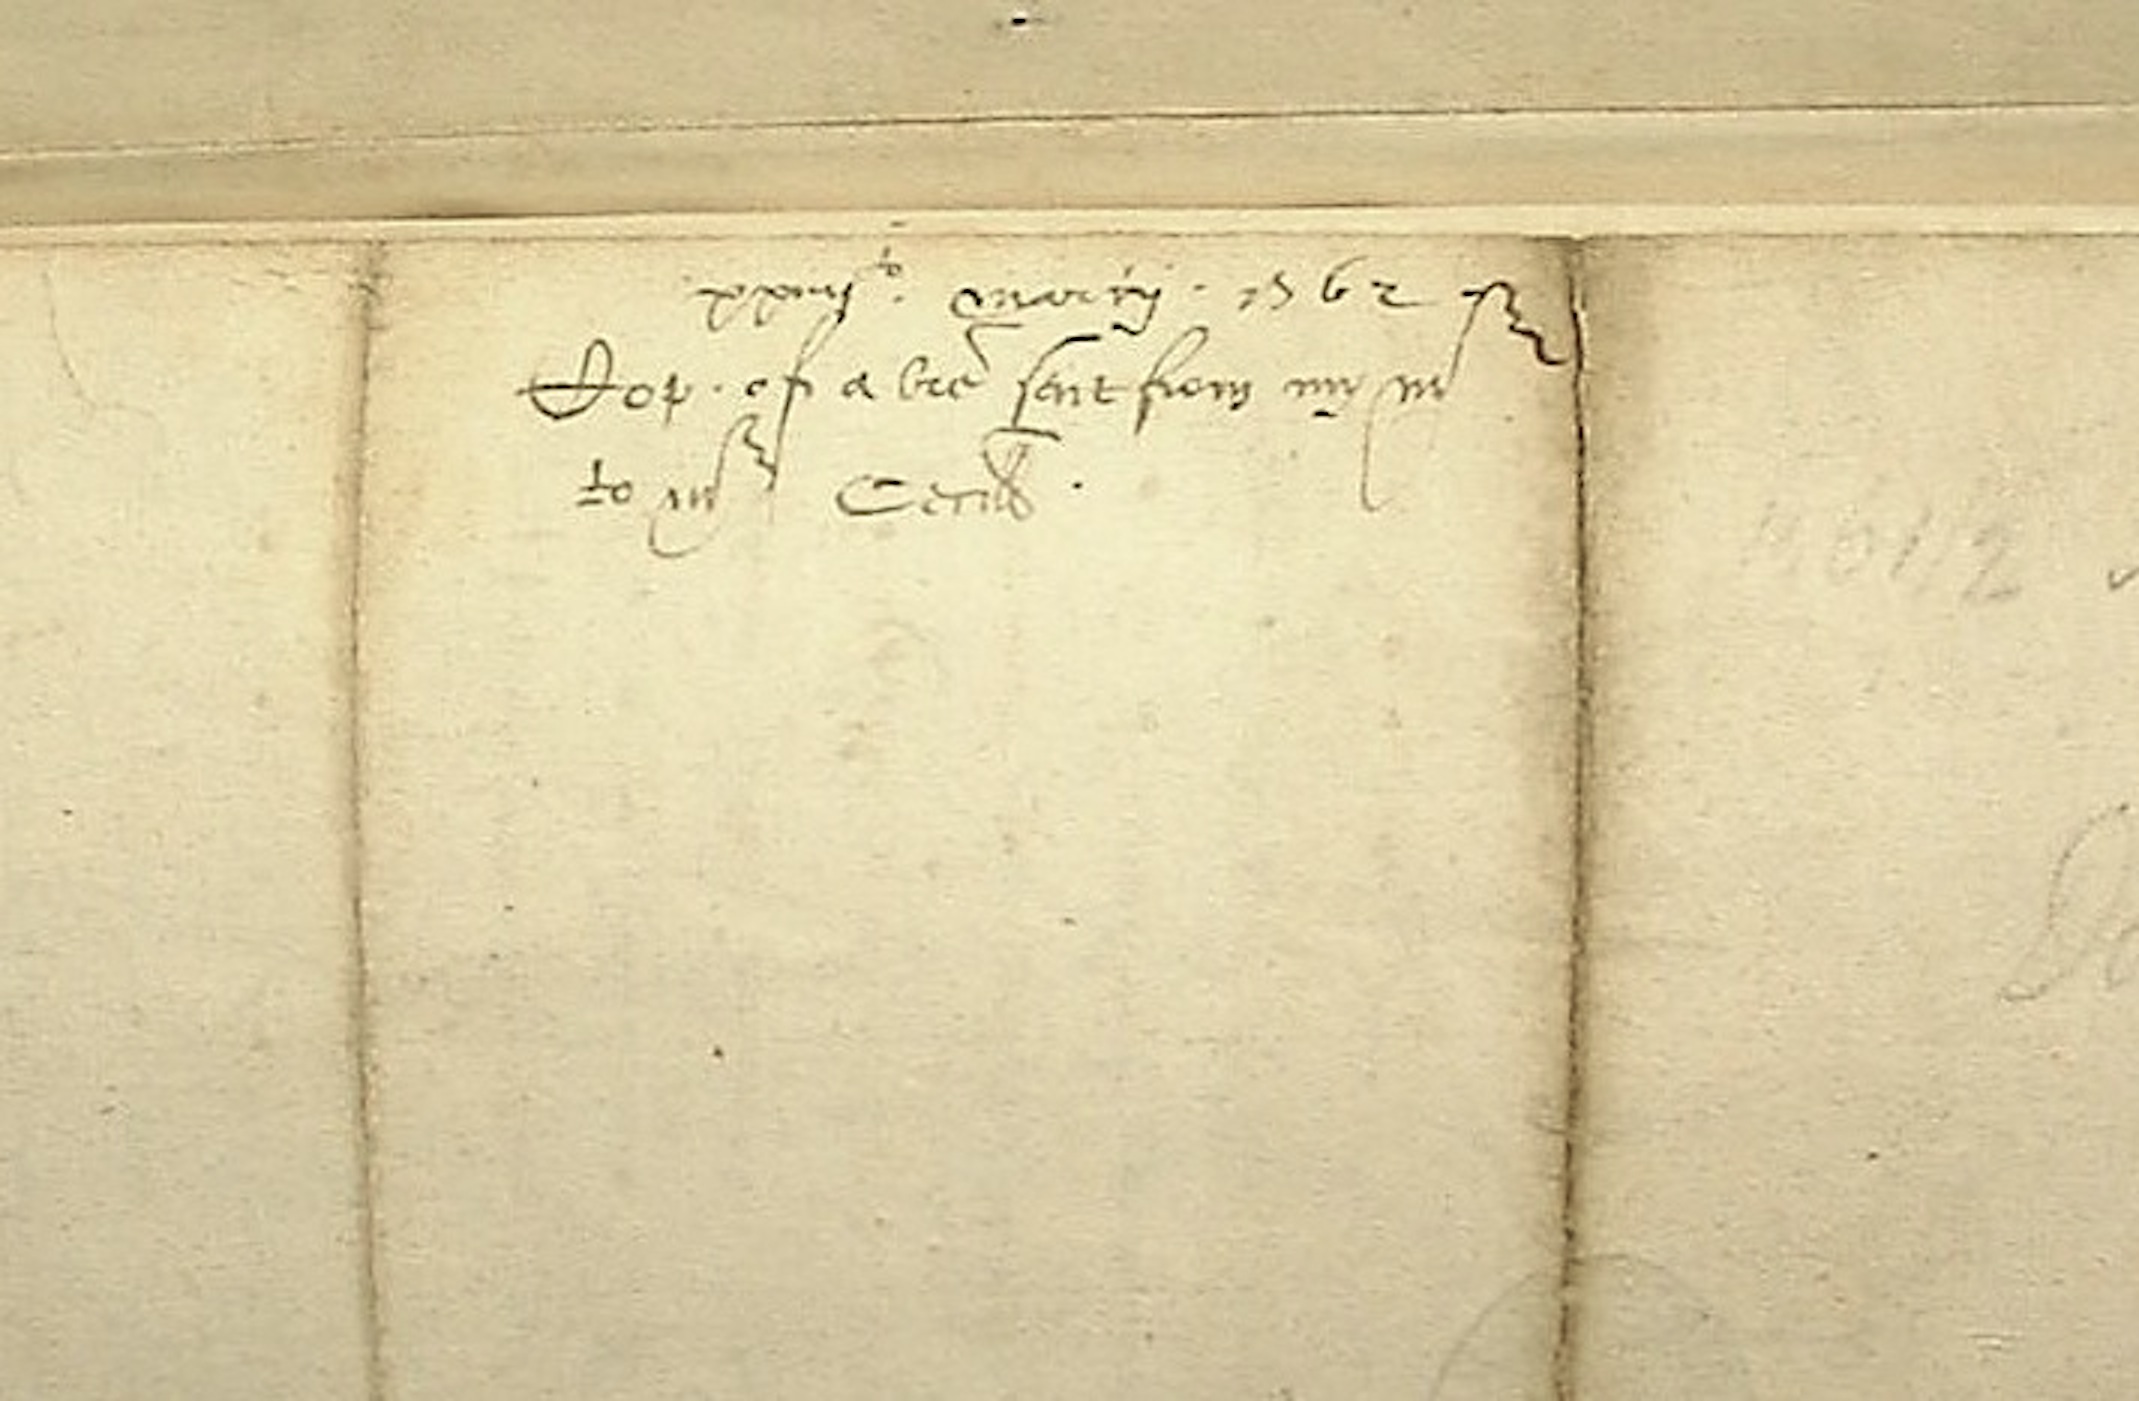 xxiiij to. Marcij. 1562
Cop. of a lre sent from my mr
to mr Cecill.